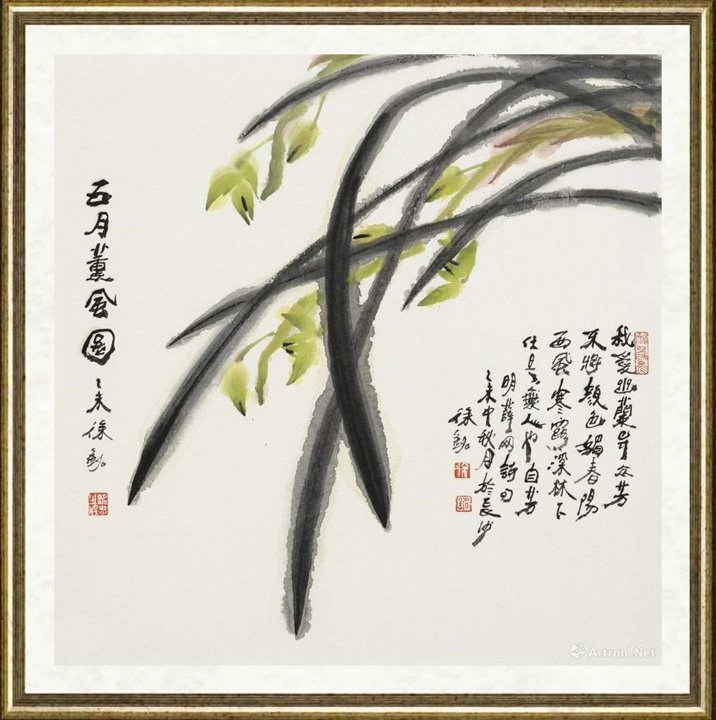 我愛幽蘭异众芳
不將顏色媚春陽
西風寒露深林下
任是無人也自芳
明薛网詩句
乙未中秋月於長沙
徐
五月薰風圖 乙未徐
Artron.Net